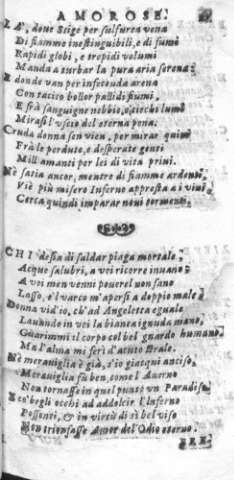 AMOROSE.
LA, doue Stige per sulfurea vena
Di fiamme inestinguibili, e di fumo
Rapidi globi, e trepidi volumi
Manda a turbar la pura aria serena;
E donde van per infeconda arena
Con tacito bollor pallidi fiumi,
E frà sanguigne nebbie, e ciechi lumi
Mirasi l'vscio del eterna pena;
Cruda donna sen vien, per mirar quiui
Frà le perdute, e desperate genti
Mill'amanti per lei di vita priui.
Nè satia ancor, mentre di fiamme ardenti,
Viè più misero Inferno appresta a i viui,
Cerca quindi imparar noui tormenti.
CHI desia di saldar piaga mortale,
Acque salubri, a voi ricorre inuano:
A voi men venni pouerel non sano
Lasso, e'l varco m'apersi a doppio male;
Donna vid'io, ch'ad Angeletta eguale
Lauando in voi la bianca ignuda mano,
Guarimmi il corpo col bel guardo humano,
Ma l'alma mi ferì d'acuto strale.
Nè merauiglia è già, s'io giacqui anciso,
Merauiglia fù ben, come l'Auerno
Non tornasse in quel punto vn Paradiso,
E co' begli occhi ad addolcir l'Inferno
Possenti, & in virtù di sì bel viso
Non trionfasse Amor del'Odio eterno.